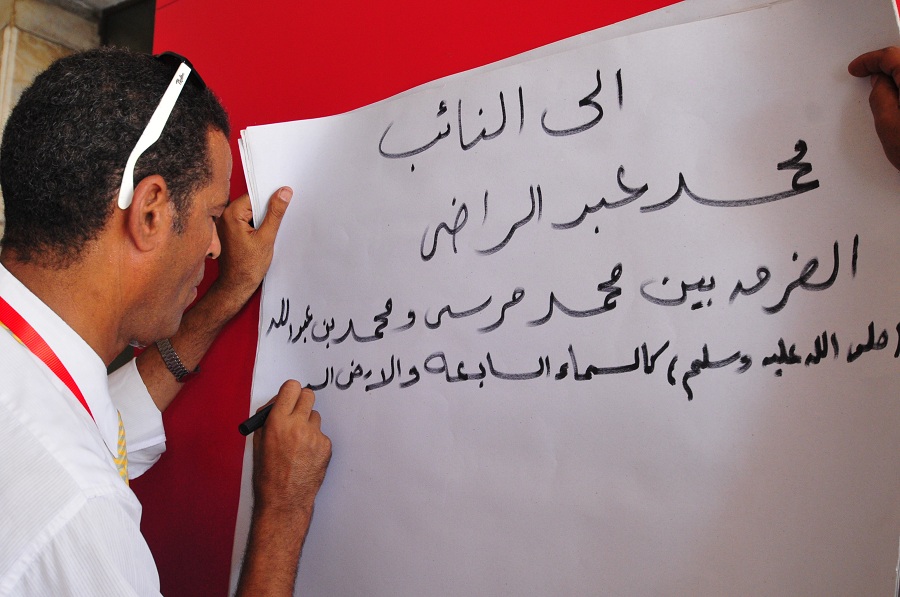 الى النائب
محمد عبد الراضى
الفرق بين محمد مرسى ومحمد بن عبدالله
(صلى الله عليه وسلم) كالسماء السابعه والارض الس